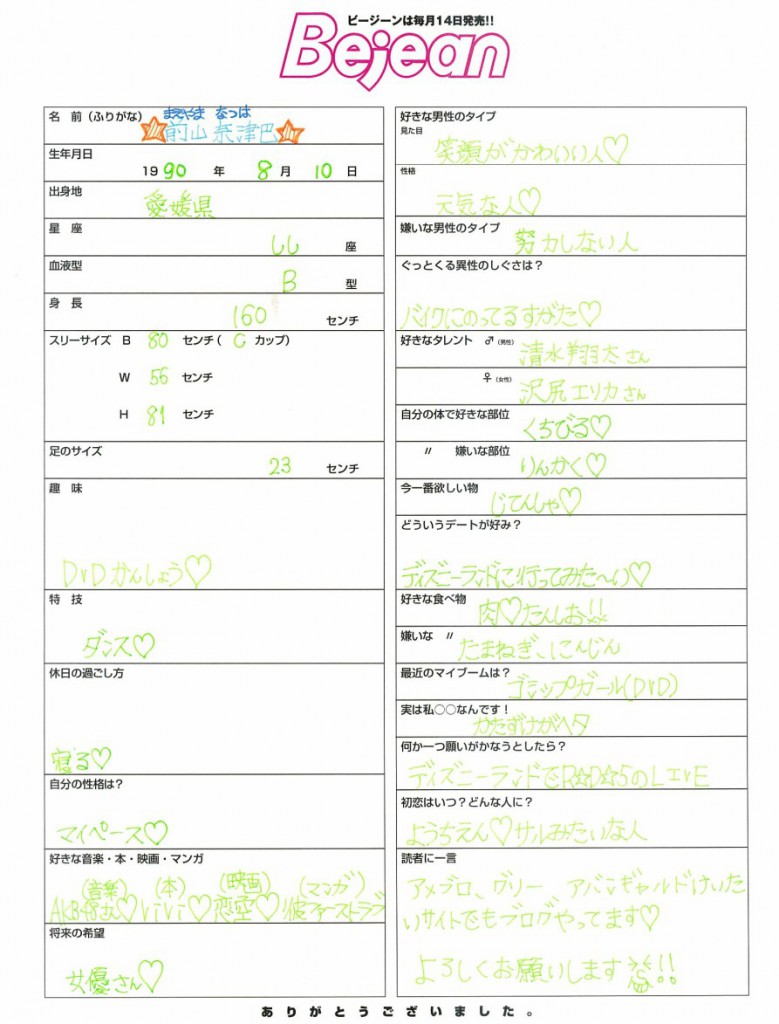 ビージーンは毎月14日発売!!
Bejean
名　前 (ふりがな) まえやま なつは
前山 奈津巴
生年月日
1990 年 8 月 10 日
出身地
愛媛県
星　座
しし 座
血液型
B 型
身　長
160 センチ
スリーサイズ B 80 センチ ( C カップ)
W 56 センチ
H 81 センチ
足のサイズ
23 センチ
趣　味
DVDかんしょう♡
特　技
ダンス♡
休日の過ごし方
寝る♡
自分の性格は？
マイペース♡
好きな音楽・本・映画・マンガ
(音楽) (本) (映画) (マンガ)
AKB48さん♡ ViVi♡ 恋空♡ 彼ファーストラブ
将来の希望
女優さん♡
好きな男性のタイプ
見た目
笑顔がかわいい人♡
性格
元気な人♡
嫌いな男性のタイプ
努力しない人
ぐっとくる異性のしぐさは？
バイクにのってるすがた♡
好きなタレント ♂ (男性) 清水翔太さん
♀ (女性) 沢尻エリカさん
自分の体で好きな部位
くちびる♡
〃 嫌いな部位
りんかく♡
今一番欲しい物
じてんしゃ♡
どういうデートが好み？
ディズニーランドに行ってみた〜い♡
好きな食べ物
肉♡たんしお!!
嫌いな 〃
たまねぎ、にんじん
最近のマイブームは？
ゴシップガール(DVD)
実は私○○なんです！
かたずけがヘタ
何か一つ願いがかなうとしたら？
ディズニーランドでR☆D☆5のLIVE
初恋はいつ？どんな人に？
ようちえん♡サルみたいな人
読者に一言
アメブロ、グリー アバンギャルドけいた
いサイトでもブログやってます♡
よろしくお願いします!!
ありがとうございました。